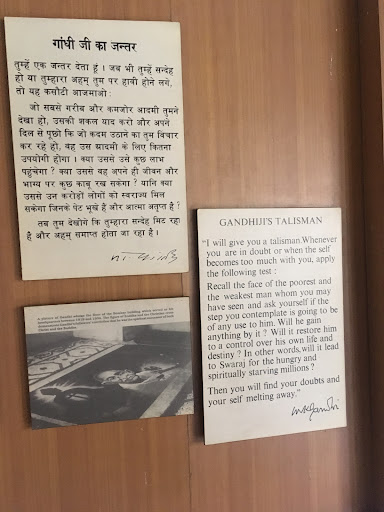 गांधी जी का जन्तर
तुम्हें एक जन्तर देता हूं । जब भी तुम्हें सन्देह
हो या तुम्हारा अहम् तुम पर हावी होने लगे,
तो यह कसौटी आजमाओ :
जो सबसे गरीब और कमजोर आदमी तुमने
देखा हो, उसकी शकल याद करो और अपने
दिल से पूछो कि जो कदम उठाने का तुम विचार
कर रहे हो, वह उस आदमी के लिए कितना
उपयोगी होगा । क्या उससे उसे कुछ लाभ
पहुंचेगा ? क्या उससे वह अपने ही जीवन और
भाग्य पर कुछ काबू रख सकेगा ? यानि क्या
उससे उन करोड़ों लोगों को स्वराज्य मिल
सकेगा जिनके पेट भूखे हैं और आत्मा अतृप्त है ?
तब तुम देखोगे कि तुम्हारा सन्देह मिट रहा
है और अहम् समाप्त होता जा रहा है ।
GANDHIJI'S TALISMAN
"I will give you a talisman.Whenever
you are in doubt or when the self
becomes too much with you, apply
the following test :
Recall the face of the poorest and
the weakest man whom you may
have seen and ask yourself if the
step you contemplate is going to be
of any use to him. Will he gain
anything by it ? Will it restore him
to a control over his own life and
destiny ? In other words,will it lead
to Swaraj for the hungry and
spiritually starving millions ?
Then you will find your doubts and
your self melting away."
mkGandhi